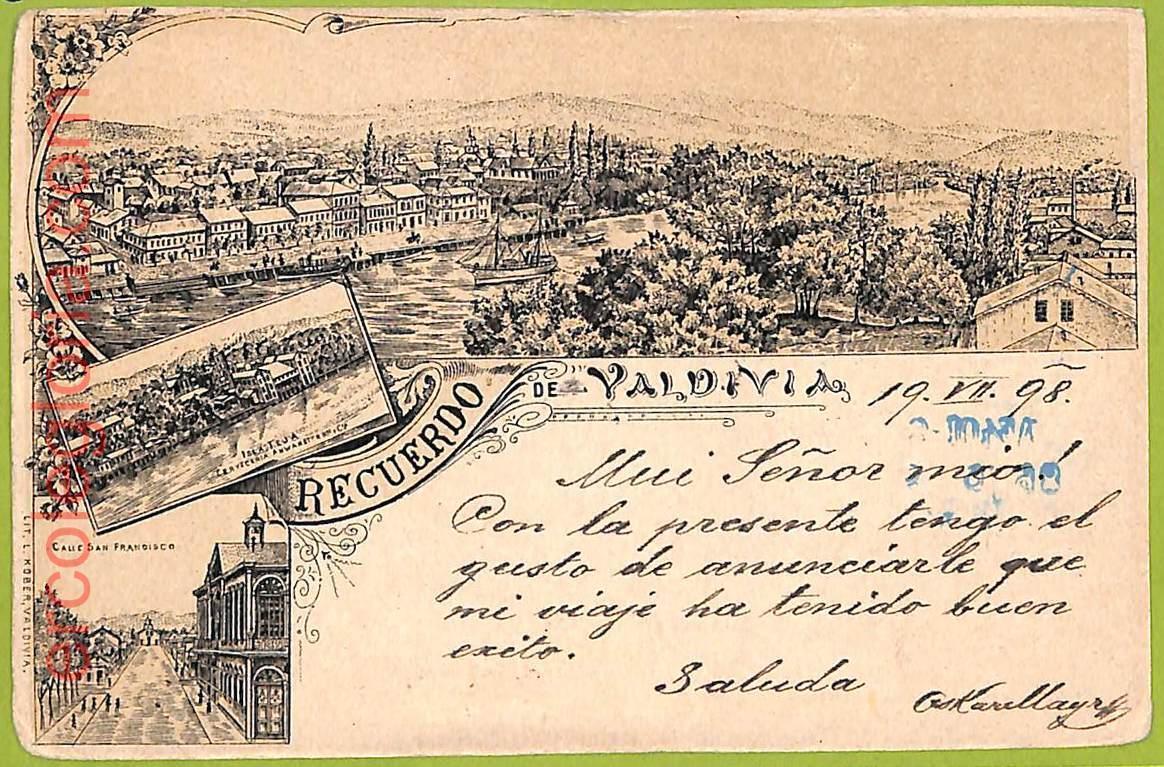 RECUERDO DE VALDIVIA
19. VII. 98.
Mui Señor mio!
Con la presente tengo el
gusto de anunciarle que
mi viaje ha tenido buen
exito.
Saluda
Oskar Mayr
ISLA TEJA
CERVECERIA ANWANDTER H. Y Cº
CALLE SAN FRANCISCO
LIT. L. ROBER, VALDIVIA.
ercolegloria.com